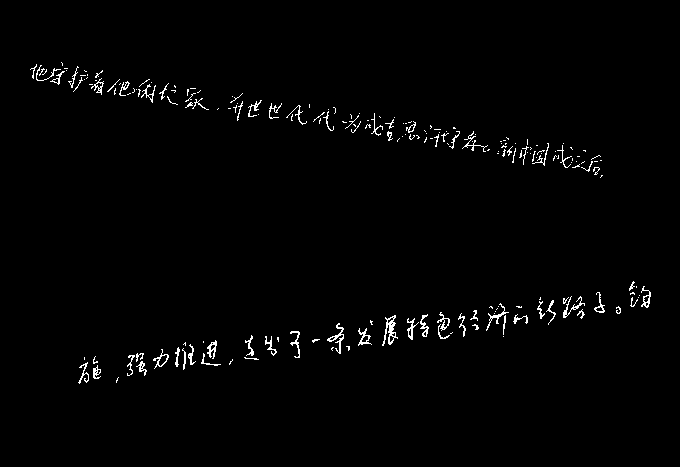 地守护着他的传家,并世世代代为成吉思汗守孝。新中国成立后,
施,强力推进,走出了一条发展特色经济的新路子。钩